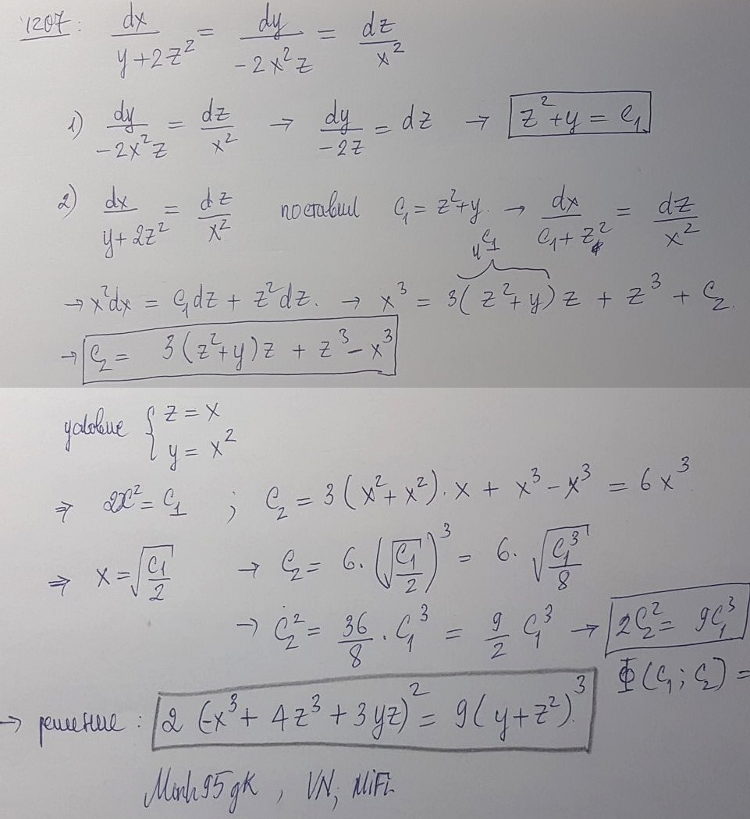 1207: dx/(y+2z²) = dy/(-2x²z) = dz/x²
1) dy/(-2x²z) = dz/x² → dy/(-2z) = dz → z²+y = C₁
2) dx/(y+2z²) = dz/x² поставил C₁ = z²+y → dx/(C₁+z²) = dz/x²
→ x²dx = C₁dz + z²dz. → x³ = 3(z²+y)z + z³ + C₂
→ C₂ = 3(z²+y)z + z³-x³
условие { z = x
y = x²
⇒ 2x² = C₁ ; C₂ = 3(x²+x²).x + x³-x³ = 6x³
⇒ x = √(C₁/2) → C₂ = 6.(√(C₁/2))³ = 6.√(C₁³/8)
→ C₂² = 36/8 . C₁³ = 9/2 C₁³ → 2C₂² = 9C₁³
Φ(C₁; C₂) =
→ решение: 2(-x³ + 4z³ + 3yz)² = 9(y+z²)³
Minh95gk, VN, MiFi